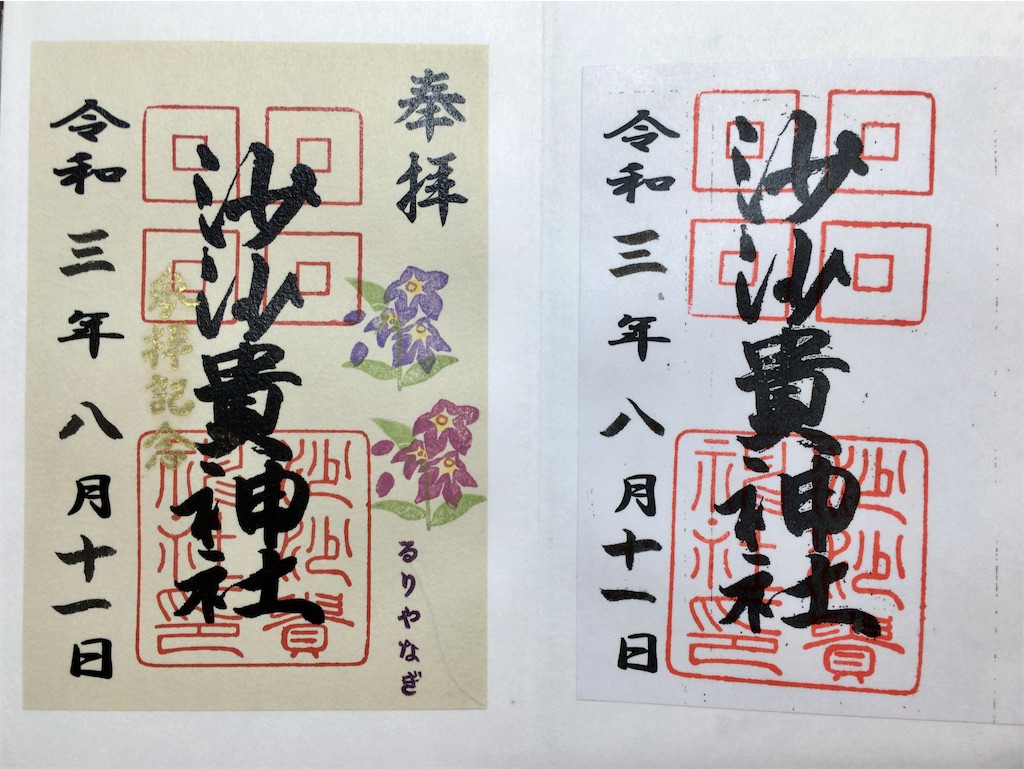 奉拝
るりやなぎ
沙沙貴神社
沙沙貴
神社印
参拝記念
令和三年八月十一日
沙沙貴神社
沙沙貴
神社印
令和三年八月十一日